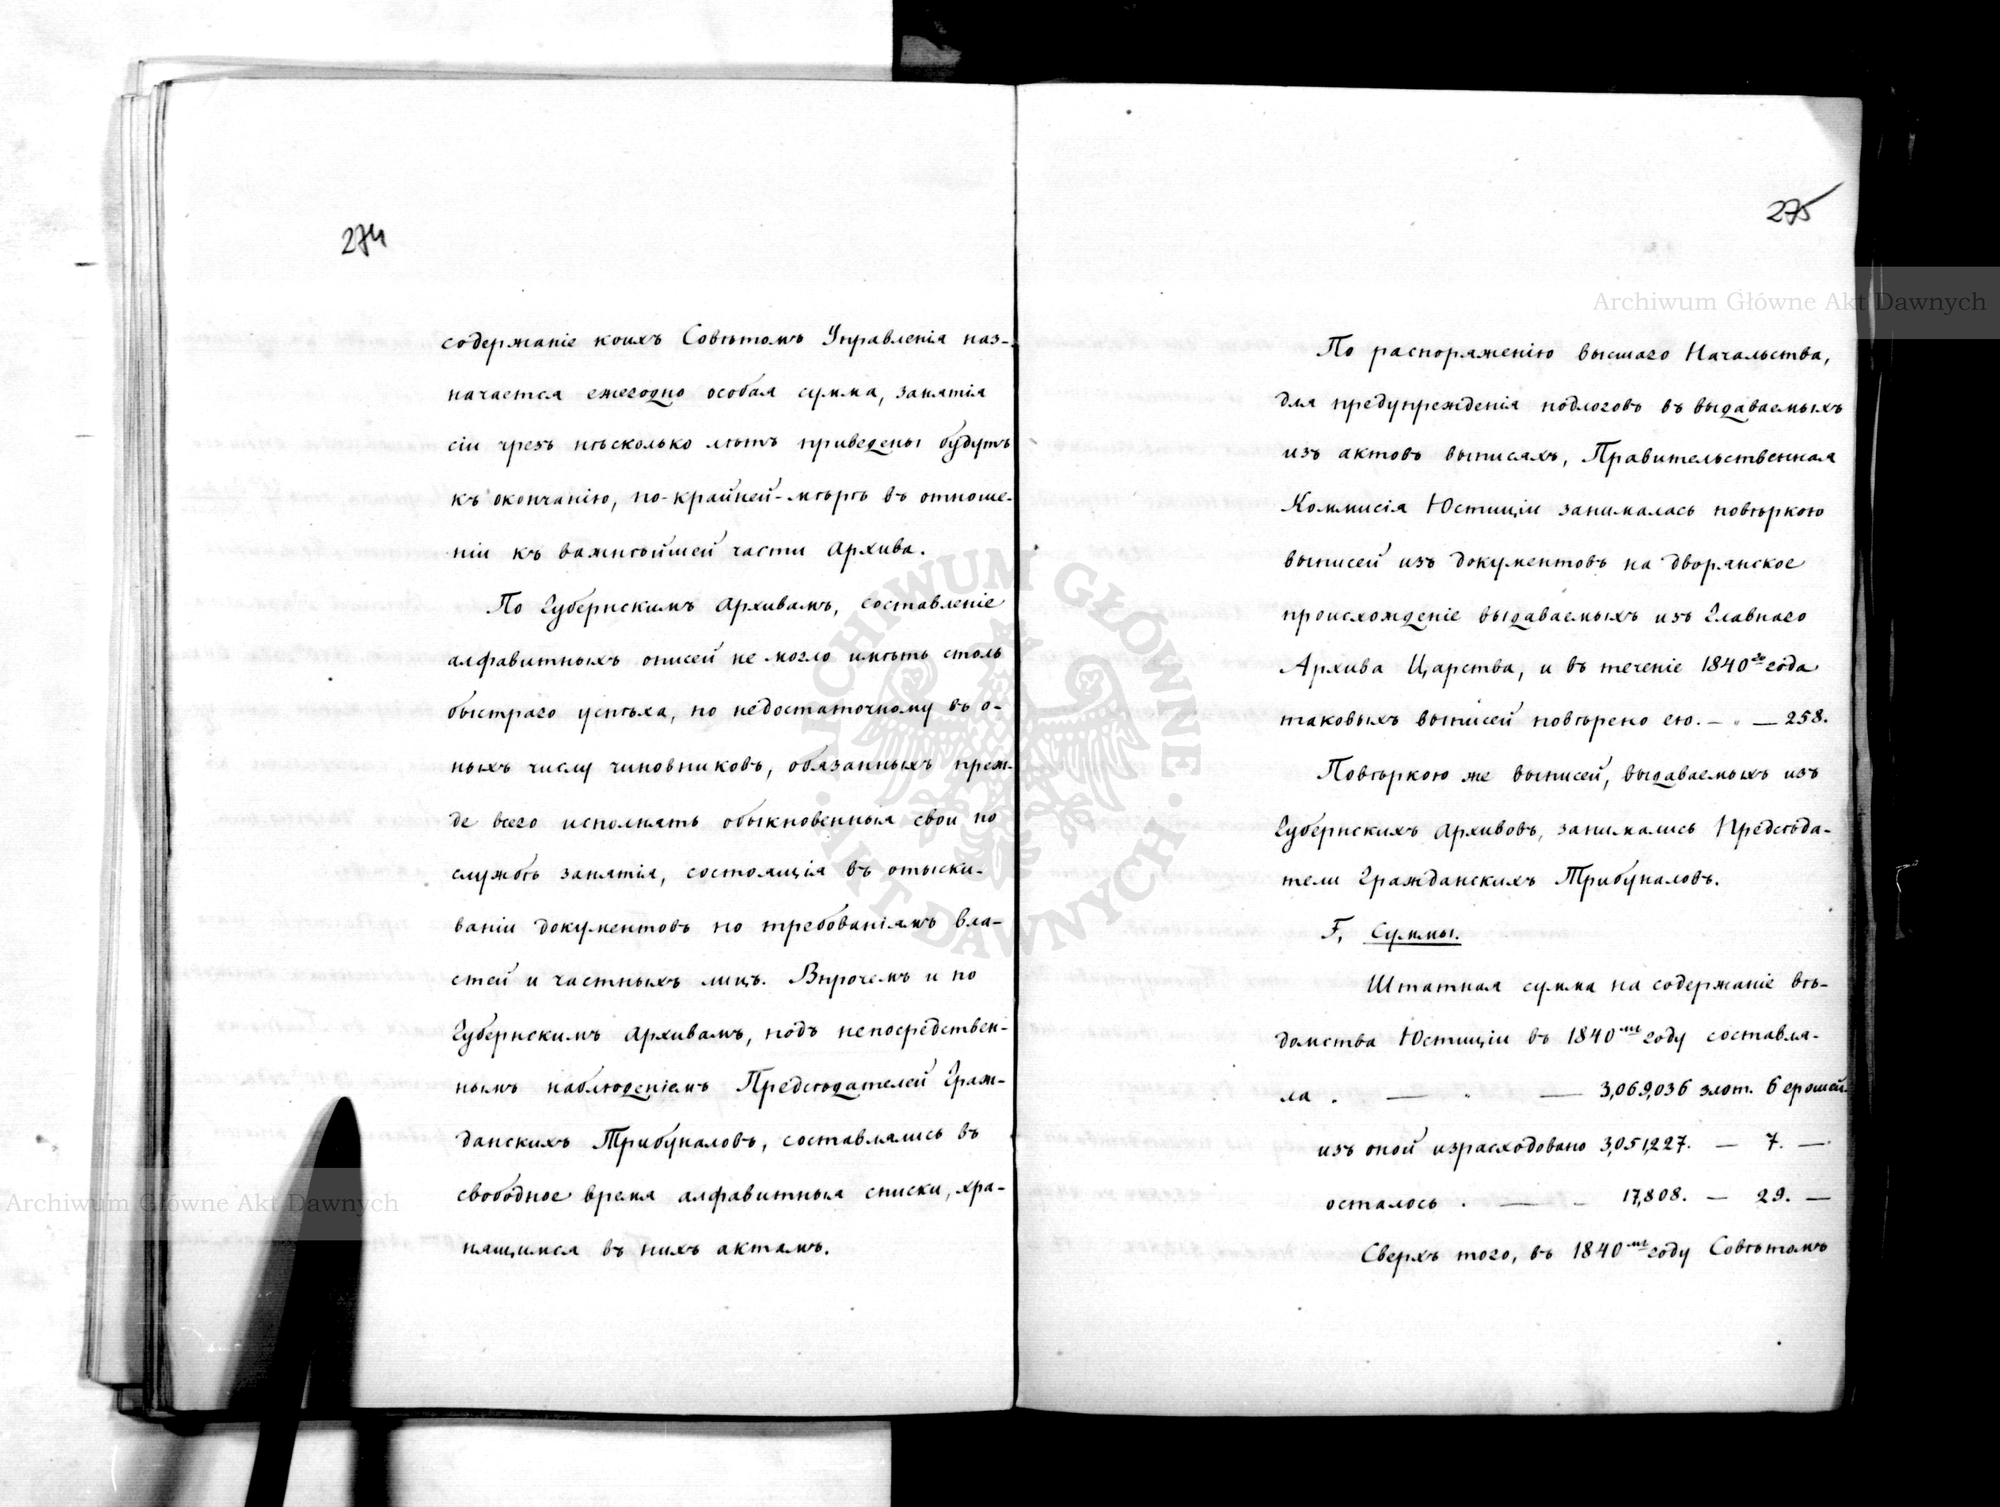 274
содержаніе коихъ Совѣтомъ Управленія наз-
начается ежегодно особая сумма, занятія
сіи чрезъ нѣсколько лѣтъ приведены будутъ
къ окончанію, по-крайней-мѣрѣ въ отноше-
ніи къ важнѣйшей части Архива.
По Губернскимъ Архивамъ, составленіе
алфавитныхъ описей не могло имѣть столь
быстраго успѣха, по недостаточному въ о-
ныхъ числу чиновниковъ, обязанныхъ преж-
де всего исполнять обыкновенныя свои по
службѣ занятія, состоящія въ отыски-
ваніи документовъ по требованіямъ Вла-
стей и частныхъ лицъ. Впрочемъ и по
Губернскимъ Архивамъ, подъ непосредствен-
нымъ наблюденіемъ Предсѣдателей Граж-
данскихъ Трибуналовъ, составлялись въ
свободное время алфавитныя списки, хра-
нящимся въ нихъ актамъ.
275
По распоряженію высшаго Начальства,
для предупрежденія подлоговъ въ выдаваемыхъ
изъ актовъ выписяхъ, Правительственная
Коммисія Юстиціи занималась повѣркою
выписей изъ документовъ на дворянское
происхожденіе выдаваемыхъ изъ Главнаго
Архива Царства, и въ теченіе 1840го года
таковыхъ выписей повѣрено ею. — „ — 258.
Повѣркою же выписей, выдаваемыхъ изъ
Губернскихъ Архивовъ, занимались Предсѣда-
тели Гражданскихъ Трибуналовъ.
F, Суммы.
Штатная сумма на содержаніе вѣ-
домства Юстиціи въ 1840мъ году составля-
ла . — . — 3,069,036 злот. 6 грошей.
изъ оной израсходовано 3,051,227. — 7. —
осталось . — - 17,808. — 29. —
Сверхъ того, въ 1840мъ году Совѣтомъ
Archiwum Główne Akt Dawnych
Archiwum Główne Akt Dawnych
ARCHIWUM GŁÓWNE · AKT DAWNYCH ·